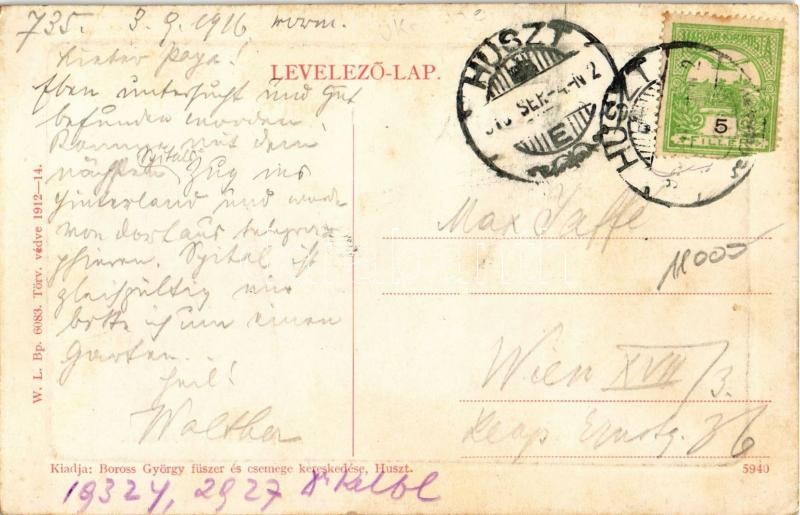 735. 3. 9. 1916 vorm.
Lieber Papa!
LEVELEZŐ-LAP.
Eben untersucht und gut
befunden worden
Komme mit dem
nächsten Spitals Zug ins
Hinterland und werde
von dort aus telegra-
phieren. Spital ist
gleichgültig nur
bitte ich um einen
Garten.
Heil!
Walther
HUSZT
916 SEP.
E
HUSZT
MAGYAR KIR. POSTA
5
FILLER
Max Jaffe
11000
Wien XVII/3.
Ernstg. 36
W. L. Bp. 6083. Törv. védve 1912—14.
Kiadja: Boross György füszer és csemege kereskedése, Huszt.
5940
19324, 2927